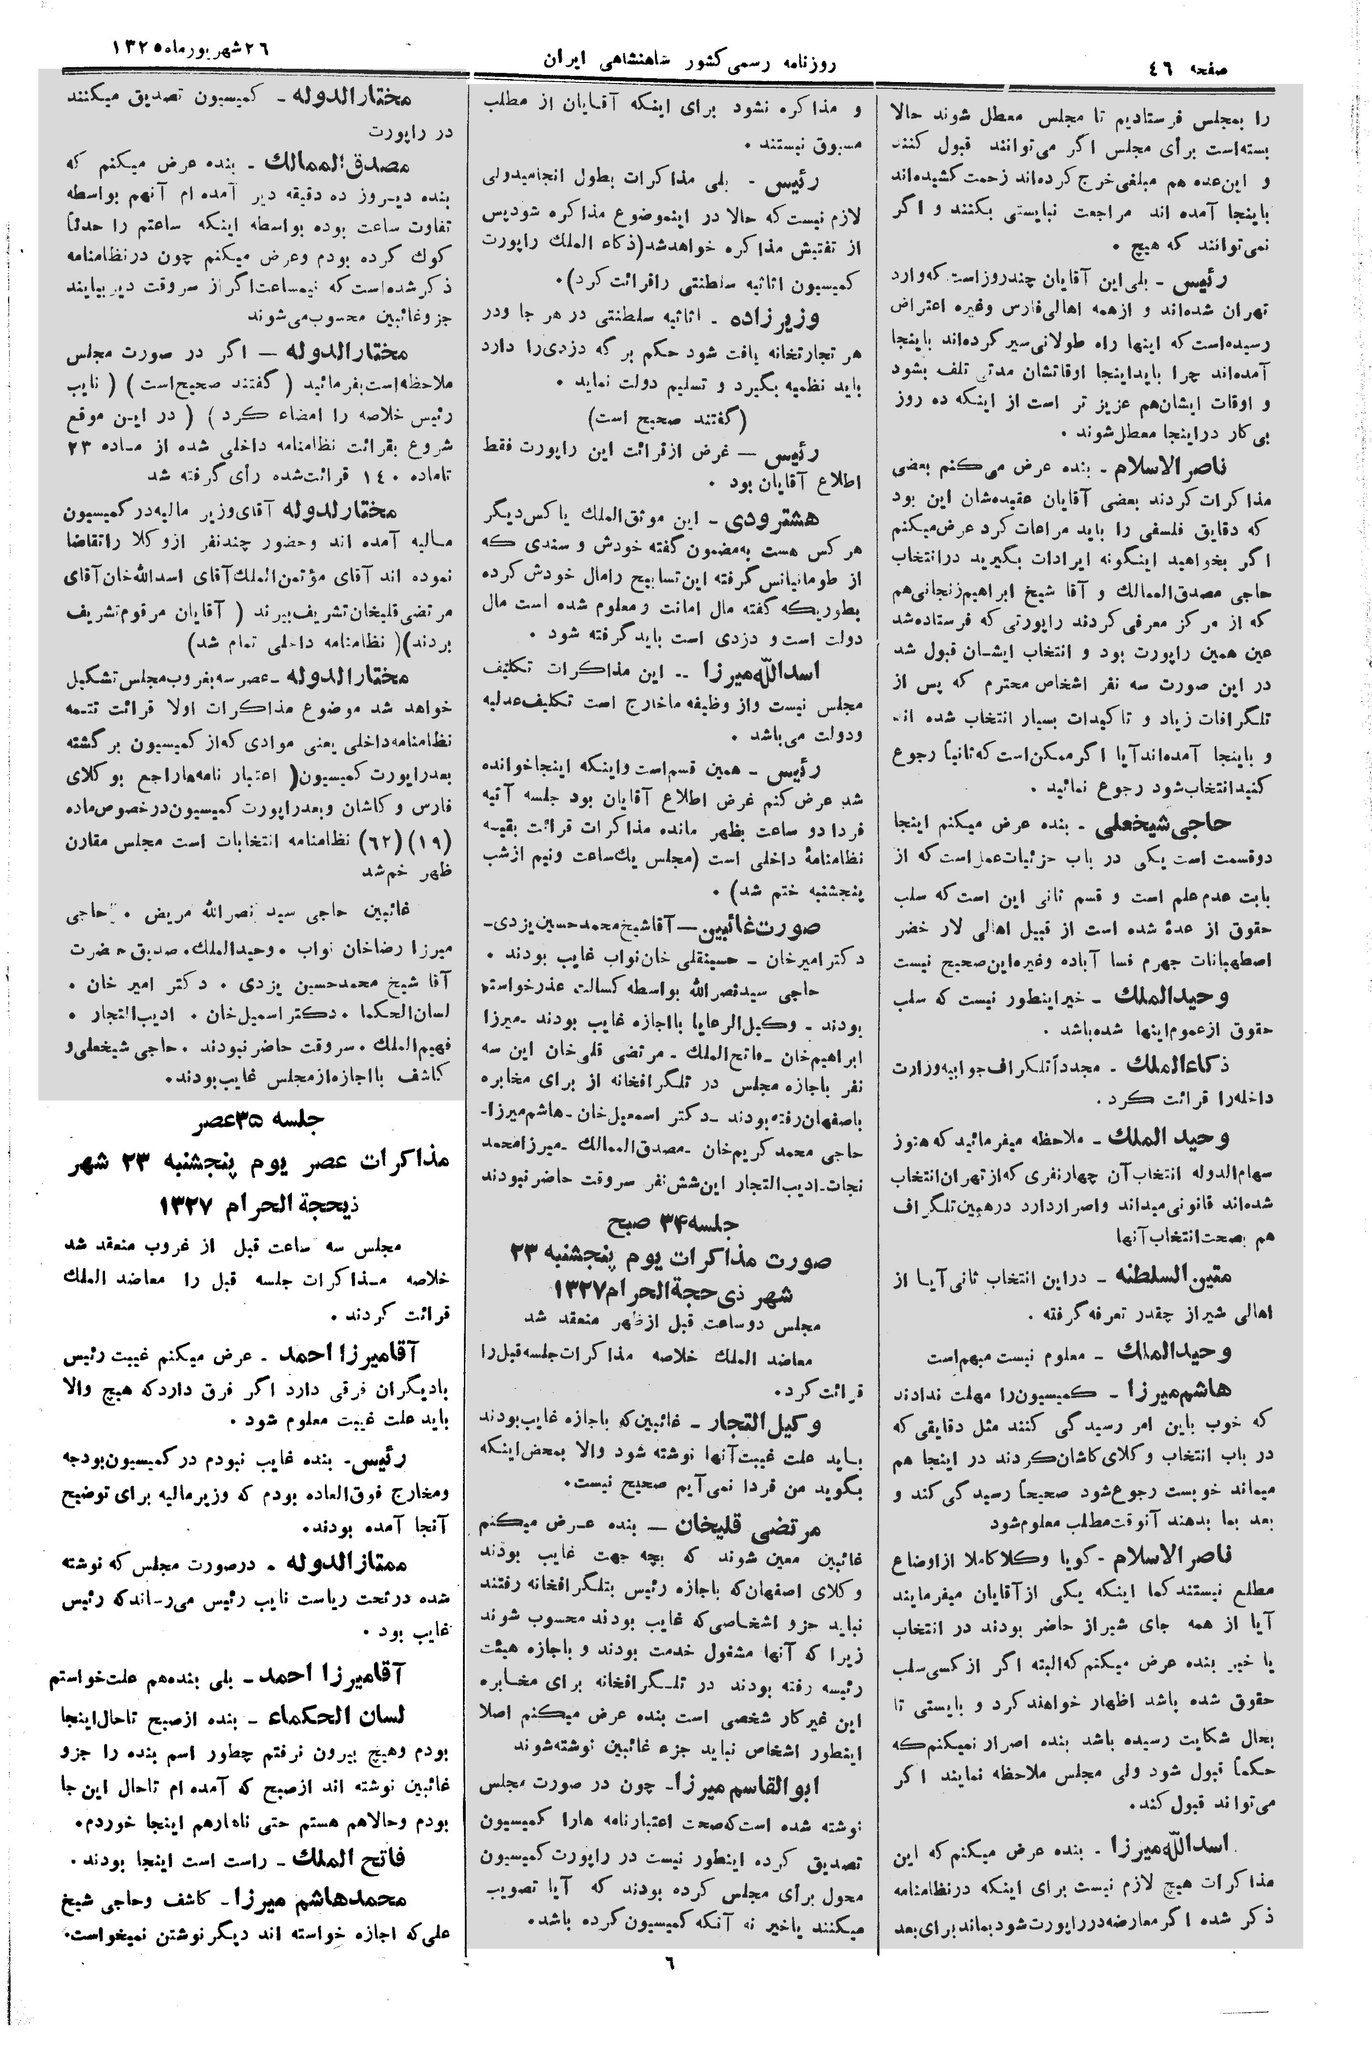 صفحه ٤٦
روزنامه رسمی کشور شاهنشاهی ایران
٢٦ شهریور ماه ١٣٢٥
را بمجلس فرستادیم تا مجلس معطل شوند حالا
بسته‌است برای مجلس اگر می‌توانند قبول کنند
و این‌عده هم مبلغی خرج کرده‌اند زحمت کشیده‌اند
باینجا آمده اند مراجعت نبایستی بکنند و اگر
نمی‌توانند که هیچ .
رئیس - بلی این آقایان چند روز است که وارد
تهران شده‌اند و از همه اهالی فارس وغیره اعتراض
رسیده‌است که اینها راه طولانی سیر کرده‌اند باینجا
آمده‌اند چرا باید اینجا اوقاتشان مدتی تلف بشود
و اوقات ایشان‌هم عزیز تر است از اینکه ده روز
بی‌کار در اینجا معطل شوند .
ناصر الاسلام - بنده عرض می‌کنم بعضی
مذاکرات کردند بعضی آقایان عقیده‌شان این بود
که دقایق فلسفی را باید مراعات کرد عرض میکنم
اگر بخواهید اینگونه ایرادات بگیرید در انتخاب
حاجی مصدق الممالک و آقا شیخ ابراهیم زنجانی هم
که از مرکز معرفی کردند راپورتی که فرستاده شد
عین همین راپورت بود و انتخاب ایشان قبول شد
در این صورت سه نفر اشخاص محترم که پس از
تلگرافات زیاد و تاکیدات بسیار انتخاب شده اند
و باینجا آمده‌اند آیا اگر ممکن است که ثانیاً رجوع
کنید انتخاب شود رجوع نمائید .
حاجی شیخعلی - بنده عرض میکنم اینجا
دو قسمت است یکی در باب جزئیات عمل است که از
بابت عدم علم است و قسم ثانی این است که سلب
حقوق از عدهٔ شده است از قبیل اهالی لار خضر
اصطهبانات جهرم فسا آباده وغیره این صحیح نیست
وحید الملك - خیر اینطور نیست که سلب
حقوق از عموم اینها شده باشد .
ذکاء الملك - مجدداً تلگراف جوابیه وزارت
داخله را قرائت کرد .
وحید الملك - ملاحظه میفرمائید که هنوز
سهام الدوله انتخاب آن چهار نفری که از تهران انتخاب
شده‌اند قانونی میداند و اصرار دارد در همین تلگراف
هم بصحت انتخاب آنها
متین السلطنه - در این انتخاب ثانی آیا از
اهالی شیراز چقدر تعرفه گرفته .
وحید الملك - معلوم نیست مبهم است
هاشم میرزا - کمیسیون را مهلت ندادند
که خوب باین امر رسیدگی کنند مثل دقایقی که
در باب انتخاب وکلای کاشان کردند در اینجا هم
میماند خوبست رجوع شود صحیحاً رسیدگی کند و
بعد بما بدهند آنوقت مطلب معلوم شود
ناصر الاسلام - گویا وکلا کاملا از اوضاع
مطلع نیستند کما اینکه یکی از آقایان میفرمایند
آیا از همه جای شیراز حاضر بودند در انتخاب
یا خیر بنده عرض میکنم که البته اگر از کسی سلب
حقوق شده باشد اظهار خواهند کرد و بایستی تا
بحال شکایت رسیده باشد بنده اصرار نمیکنم که
حکماً قبول شود ولی مجلس ملاحظه نمایند اگر
می‌تواند قبول کند .
اسد الله میرزا - بنده عرض میکنم که این
مذاکرات هیچ لازم نیست برای اینکه در نظامنامه
ذکر شده اگر معارضه در راپورت شود بماند برای بعد
و مذاکره نشود برای اینکه آقایان از مطلب
مسبوق نیستند .
رئیس - بلی مذاکرات بطول انجامیدولی
لازم نیست که حالا در این موضوع مذاکره شود پس
از تفتیش مذاکره خواهد شد (ذکاء الملك راپورت
کمیسیون اثاثیه سلطنتی را قرائت کرد) .
وزیر زاده - اثاثیه سلطنتی در هر جا و در
هر تجارتخانه یافت شود حکم بر گه دزدی را دارد
باید نظمیه بگیرد و تسلیم دولت نماید .
(گفتند صحیح است)
رئیس — غرض از قرائت این راپورت فقط
اطلاع آقایان بود .
هشترودی - این موثق الملك یا کس دیگر
هر کس هست به مضمون گفته خودش و سندی که
از طومانیانس گرفته این تسابیح را مال خودش کرده
بطوریکه گفته مال امانت و معلوم شده است مال
دولت است و دزدی است باید گرفته شود .
اسد الله میرزا - این مذاکرات تکلیف
مجلس نیست و از وظیفه ما خارج است تکلیف عدلیه
و دولت می‌باشد .
رئیس - همین قسم است و اینکه اینجا خوانده
شد عرض کنم غرض اطلاع آقایان بود جلسه آتیه
فردا دو ساعت بظهر مانده مذاکرات قرائت بقیه
نظامنامهٔ داخلی است (مجلس یك ساعت و نیم از شب
پنجشنبه ختم شد) .
صورت غائبین — آقا شیخ محمد حسین یزدی -
دکتر امیر خان - حسینقلی خان نواب غایب بودند .
حاجی سید نصر الله بواسطه کسالت عذر خواسته
بودند - وکیل الرعایا با اجازه غایب بودند - میرزا
ابراهیم خان - فاتح الملك - مرتضی قلی خان این سه
نفر با اجازه مجلس در تلگرافخانه از برای مخابره
باصفهان رفته بودند - دکتر اسمعیل خان - هاشم میرزا -
حاجی محمد کریم خان - مصدق الممالك - میرزا محمد
نجات - ادیب التجار این شش نفر سر وقت حاضر نبودند
جلسه ۳۴ صبح
صورت مذاکرات یوم پنجشنبه ۲۳
شهر ذی حجة الحرام ۱۳۲۷
مجلس دو ساعت قبل از ظهر منعقد شد
معاضد الملك خلاصه مذاکرات جلسه قبل را
قرائت کرد .
وکیل التجار - غائبین که با اجازه غایب بودند
باید علت غیبت آنها نوشته شود والا بمحض اینکه
بگوید من فردا نمی‌آیم صحیح نیست .
مرتضی قلیخان — بنده عرض میکنم
غائبین معین شوند که بچه جهت غایب بودند
وکلای اصفهان که با اجازه رئیس بتلگرافخانه رفتند
نباید جزو اشخاصی که غایب بودند محسوب شوند
زیرا که آنها مشغول خدمت بودند و با اجازه هیئت
رئیسه رفته بودند در تلگرافخانه برای مخابره
این غیر کار شخصی است بنده عرض میکنم اصلا
اینطور اشخاص نباید جزء غائبین نوشته شوند
ابو القاسم میرزا - چون در صورت مجلس
نوشته شده است که صحت اعتبار نامه ها را کمیسیون
تصدیق کرده اینطور نیست در راپورت کمیسیون
محول برای مجلس کرده بودند که آیا تصویب
میکنند یا خیر نه آنکه کمیسیون کرده باشد .
٦
مختار الدوله - کمیسیون تصدیق میکنند
در راپورت
مصدق الممالك - بنده عرض میکنم که
بنده دیروز ده دقیقه دیر آمده ام آنهم بواسطه
تفاوت ساعت بوده بواسطه اینکه ساعتم را
كوك کرده بودم و عرض میکنم چون در نظامنامه
ذکر شده است که نیمساعت اگر از سر وقت دیر بیایند
جزو غائبین محسوب می‌شوند
مختار الدوله — اگر در صورت مجلس
ملاحظه است بفرمائید ( گفتند صحیح است ) ( نایب
رئیس خلاصه را امضاء کرد ) ( در این موقع
شروع بقرائت نظامنامه داخلی شده از ماده ٢٣
تا ماده ١٤٠ قرائت شده رأی گرفته شد
مختار لدوله آقای وزیر مالیه در کمیسیون
مالیه آمده اند و حضور چند نفر از وکلا را تقاضا
نموده اند آقای مؤتمن الملك آقای اسد الله خان آقای
مرتضی قلیخان تشریف ببرند ( آقایان مرقوم تشریف
بردند)( نظامنامه داخلی تمام شد)
مختار الدوله - عصر سه بغروب مجلس تشکیل
خواهد شد موضوع مذاکرات اولا قرائت تتمه
نظامنامه داخلی یعنی موادی که از کمیسیون بر گشته
بعد راپورت کمیسیون( اعتبار نامه ها راجع بوکلای
فارس و کاشان و بعد راپورت کمیسیون در خصوص ماده
(١٩)(٦٢) نظامنامه انتخابات است مجلس مقارن
ظهر ختم شد
غائبین حاجی سید نصر الله مریض . حاجی
میرزا رضا خان نواب . وحید الملك . صدیق حضرت
آقا شیخ محمد حسین یزدی . دکتر امیر خان .
لسان الحکما . دکتر اسمعیل خان . ادیب التجار .
فهیم الملك . سر وقت حاضر نبودند . حاجی شیخعلی و
کاشف با اجازه از مجلس غایب بودند .
جلسه ۳۵ عصر
مذاکرات عصر یوم پنجشنبه ۲۳ شهر
ذیحجة الحرام ۱۳۲۷
مجلس سه ساعت قبل از غروب منعقد شد
خلاصه مذاکرات جلسه قبل را معاضد الملك
قرائت کردند .
آقا میرزا احمد - عرض میکنم غیبت رئیس
با دیگران فرقی دارد اگر فرق دارد که هیچ والا
باید علت غیبت معلوم شود .
رئیس - بنده غایب نبودم در کمیسیون بودجه
و مخارج فوق العاده بودم که وزیر مالیه برای توضیح
آنجا آمده بودند .
ممتاز الدوله - در صورت مجلس که نوشته
شده در تحت ریاست نایب رئیس می‌رساند که رئیس
غایب بود .
آقا میرزا احمد - بلی بنده هم علت خواستم
لسان الحکماء - بنده از صبح تا حال اینجا
بودم و هیچ بیرون نرفتم چطور اسم بنده را جزو
غائبین نوشته اند از صبح که آمده ام تا حال این جا
بودم و حالا هم هستم حتی ناهار هم اینجا خوردم .
فاتح الملك - راست است اینجا بودند .
محمد هاشم میرزا - کاشف و حاجی شیخ
علی که اجازه خواسته اند دیگر نوشتن نمیخواست .